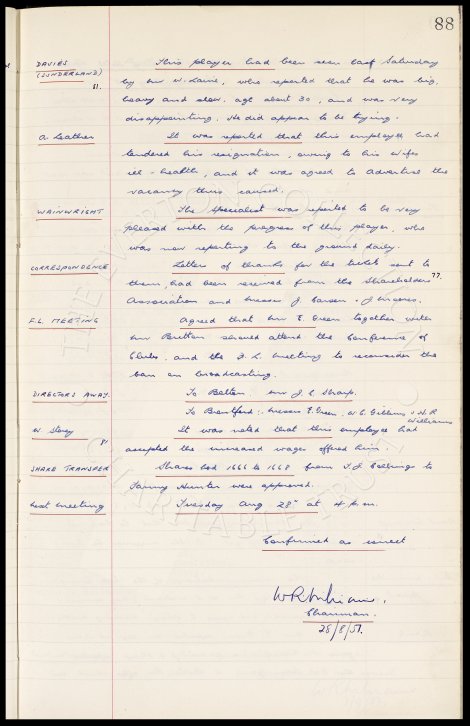 88
DAVIES This player had been seen last Saturday
(SUNDERLAND) by Mr W. Laine, who reported that he was big,
81. heavy and slow, age about 30, and was very
disappointing. He did appear to be trying.
A. Leather It was reported that this employee had
tendered his resignation, owing to his wifes
ill-health, and it was agreed to advertise the
vacancy thus caused.
WAINWRIGHT The Specialist was reported to be very
pleased with the progress of this player, who
was now reporting to the ground daily.
CORRESPONDENCE Letters of thanks for the tickets sent to
them, had been received from the Shareholders 77.
Association and Messrs J. &
F.L. MEETING Agreed that Mr E. Green together with
Mr Britton should attend the Conference of
Clubs, and the F.L. Meeting to reconsider the
ban on broadcasting.
DIRECTORS AWAY. To Bolton: Mr J. C. Sharp.
To Brentford: Messrs E. Green, W. C. Gibbins & W. R. Williams
W Storey It was noted that this employee had
81 accepted the increased wages offered him.
SHARE TRANSFER Shares Nos 1666 to 1668 from T. J. to
Hunter were approved.
Next meeting Tuesday Aug 28th at 4 p.m.
Confirmed as correct
W R Williams.
Chairman.
28/8/51.
THE EVERTON COLLECTION
CHARITABLE TRUST